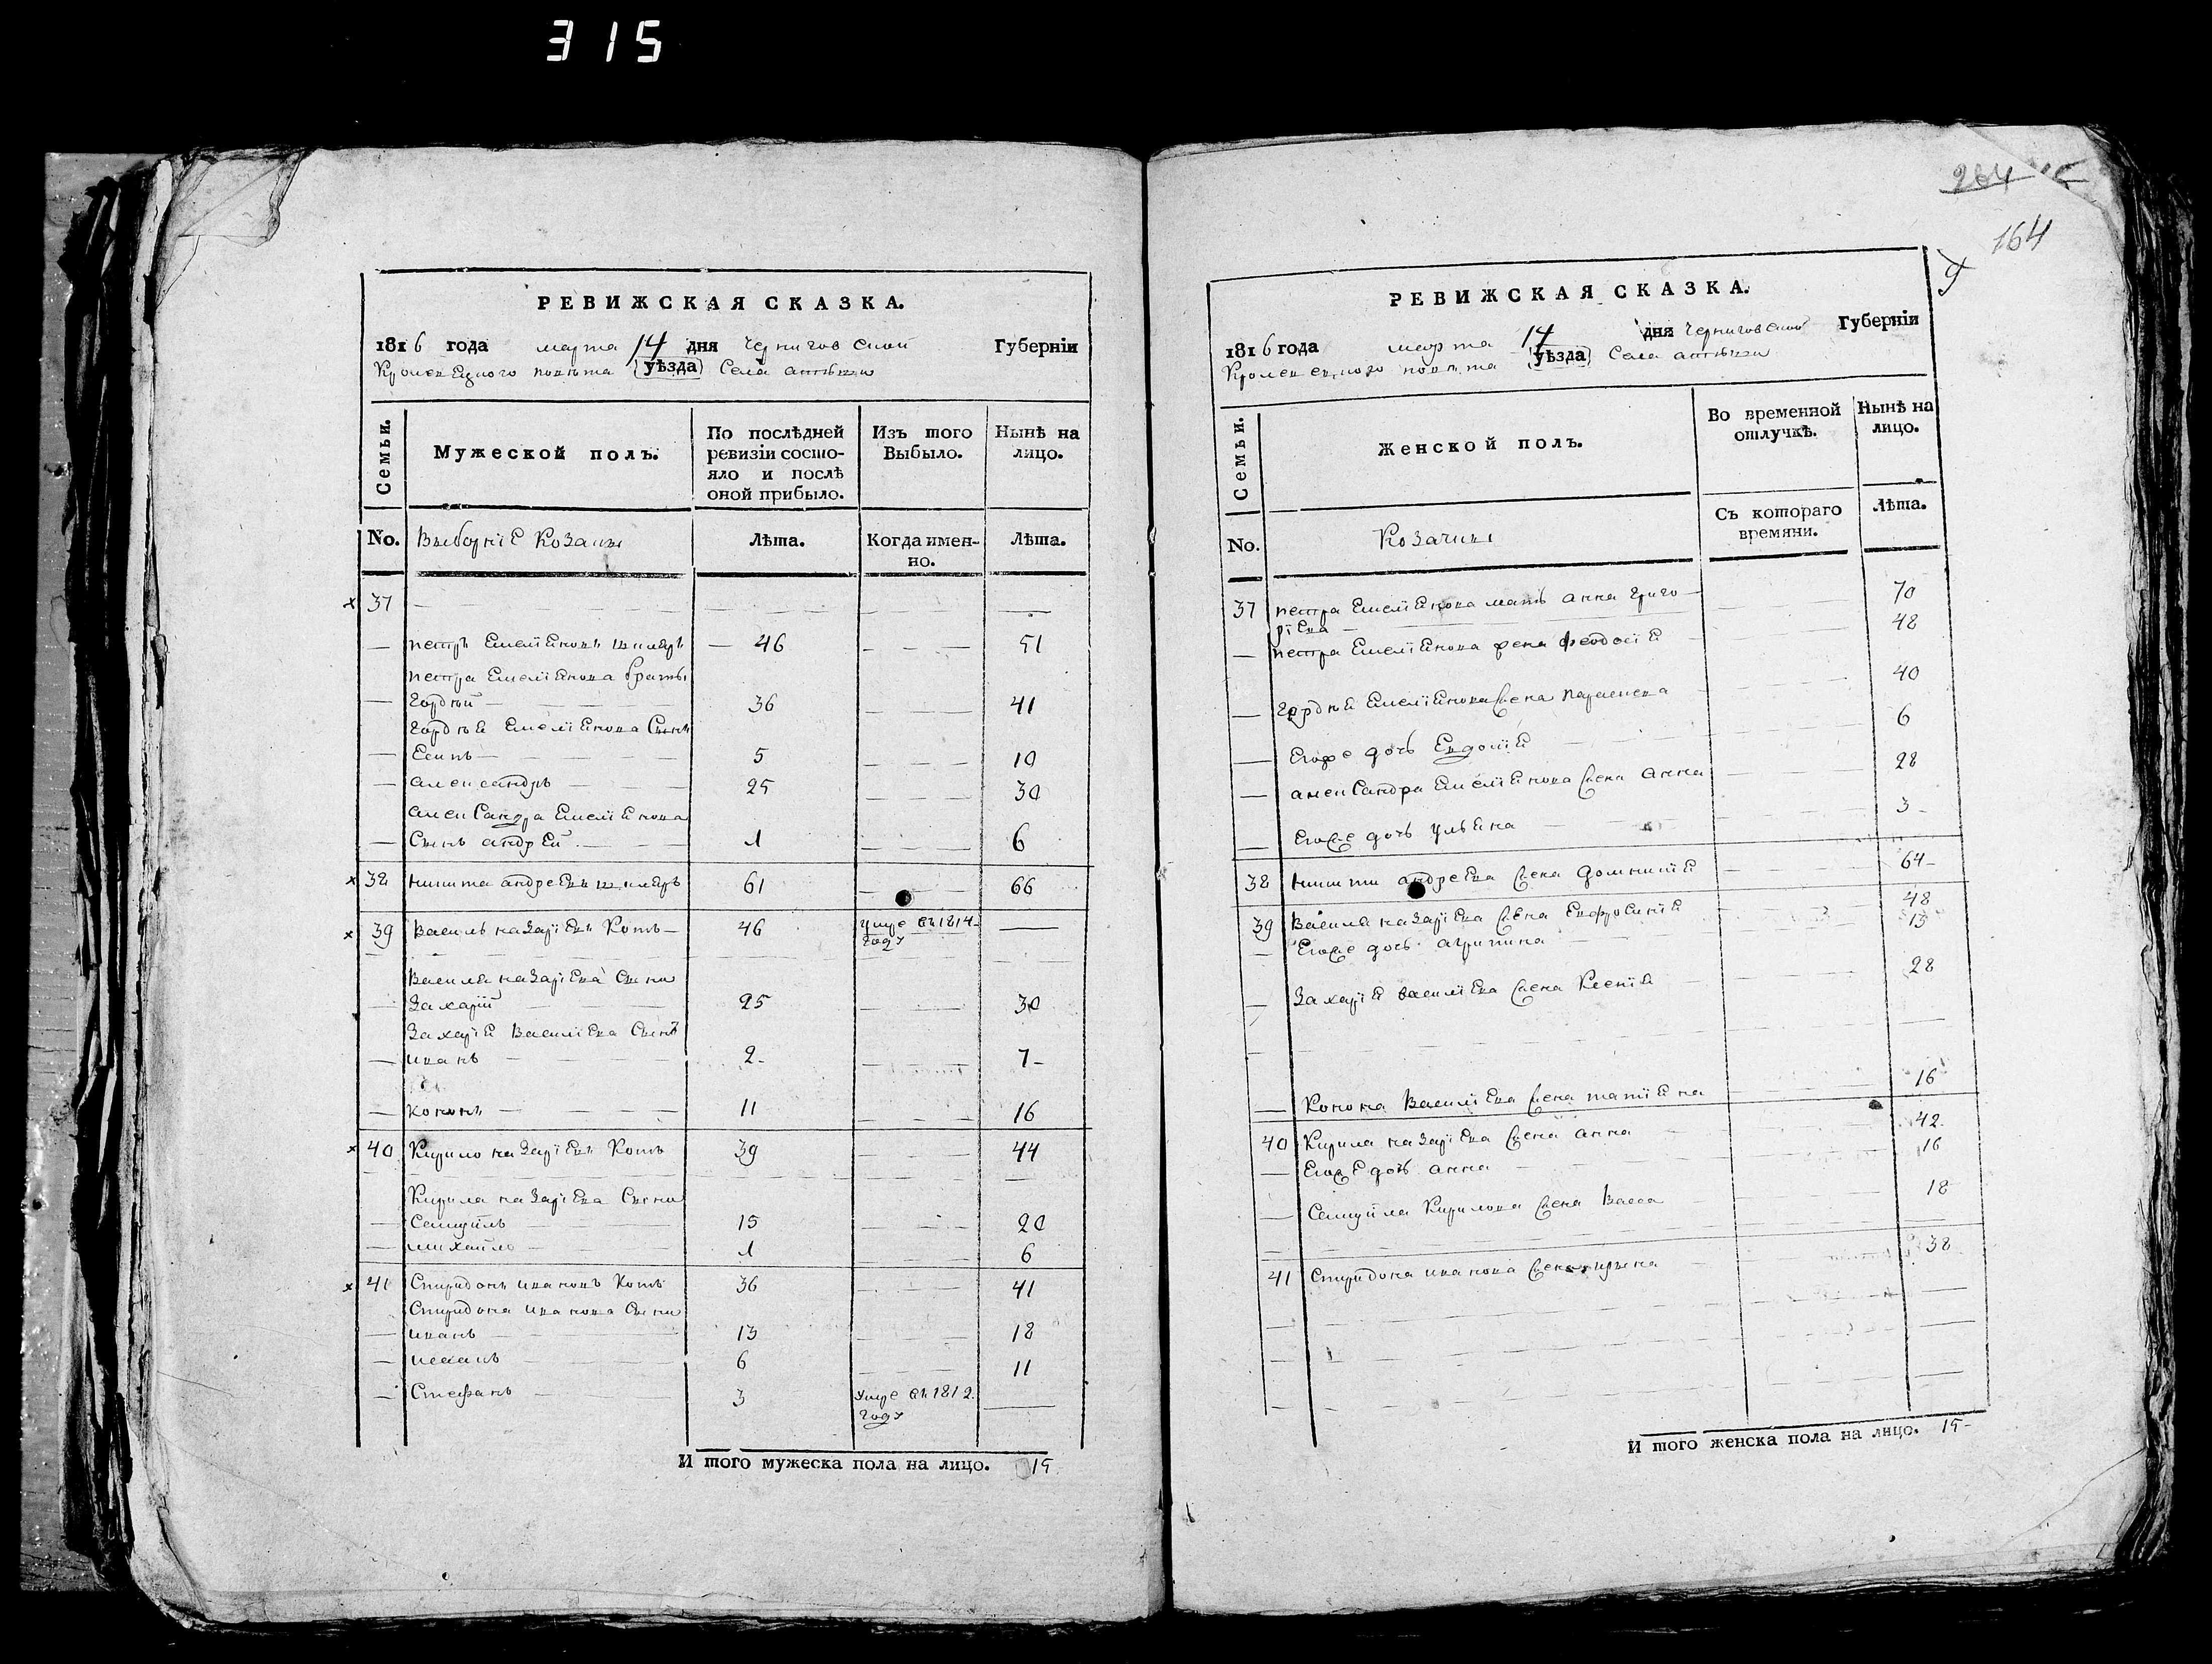 315
264
164
РЕВИЖСКАЯ СКАЗКА.
1816 года марта 14 дня Черниговской Губернїи
Кролевецкого повѣта (уѣзда) Села
Семьи.
Мужеской полъ.
По послѣдней ревизїи состо-
яло и послѣ
оной прибыло.
Изъ того
Выбыло.
Нынѣ на
лицо.
No. Виборнїе Козаки
Лѣта.
Когда имен-
но.
Лѣта.
37
петръ Емелїеновъ 46 51
петра Емелїенова братъ
гордѣй 36 41
гордѣе Емелїенова Сынъ
Есипъ 5 10
александръ 25 30
александра Емелїенова
Сынъ андрей 1 6
38 никита андреевъ 61 66
39 Василь назарїевъ Котъ 46 умре въ 1814
году
Василя назарїева Сыни
Захарїй 25 30
Захарїе Василїева Сынъ
иванъ 2 7
кононъ 11 16
40 Кирило назарїевъ Котъ 39 44
Кирила назарїева Сыни
Самуйлъ 15 20
михайло 1 6
41 Спиридонъ ивановъ Котъ 36 41
Спиридона иванова Сыни
иванъ 13 18
6 11
Стефанъ 3 умре въ 1812
году
И того мужеска пола на лицо. 15
РЕВИЖСКАЯ СКАЗКА.
1816 года марта 14 дня Черниговской Губернїи
Кролевецкого повѣта (уѣзда) Села
Семьи.
Женской полъ.
Во временной
отлучкѣ.
Нынѣ на
лицо.
No. Козачки
Съ котораго
времяни.
Лѣта.
37 петра Емелїенова мать анна григо-
рїева 70
петра Емелїенова жена феодосїе 48
гордѣе Емелїенова жена параскева 40
Егоже дочь Евдокїе 6
александра Емелїенова жена анна 28
Егоже дочь улїена 3
38 никити андреева жена домникїе 64
39 Василя назарїева жена Ефросинїе 48
Егоже дочь агрипина 13
Захарїе василїева жена Ксенїе 28
Конона Василїева жена татїена 16
40 Кирила назарїева жена анна 42
Егоже дочь анна 16
Самуйла Кирилова жена Васса 18
41 Спиридона иванова жена ирина 38
И того женска пола на лицо. 15